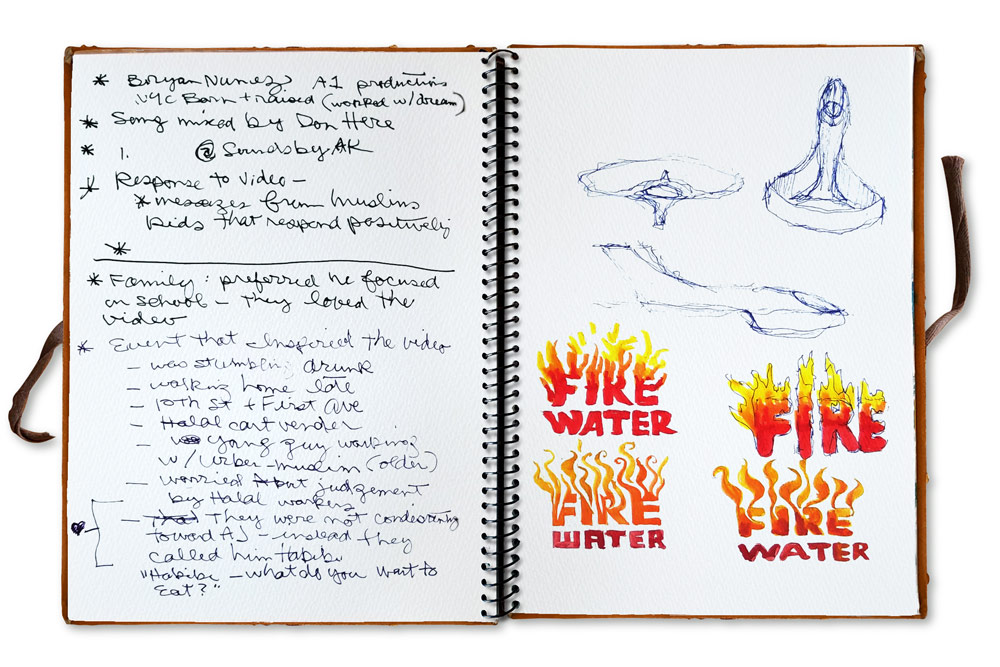 * Boryan Nunez A1 productions
NYC Born + raised (worked w/dream)
* Song mixed by Don Here
* 1. @SoundsbyAK
* Response to video –
* messages from muslims
kids that respond positively
*
* Family: preferred he focused
on school – They loved the
video
* Event that Inspired the video
– was stumbling drunk
– walking home late
– 10th St + First Ave
– Halal cart vender
– young guy working
w/ Urber-muslim (older)
– worried about judgement
by Halal workers
– They were not condesending
toward AJ – instead they
called him Habibi
"Habibi – what do you want to
eat?"
FIRE
WATER
FIRE
FIRE
WATER
FIRE
WATER